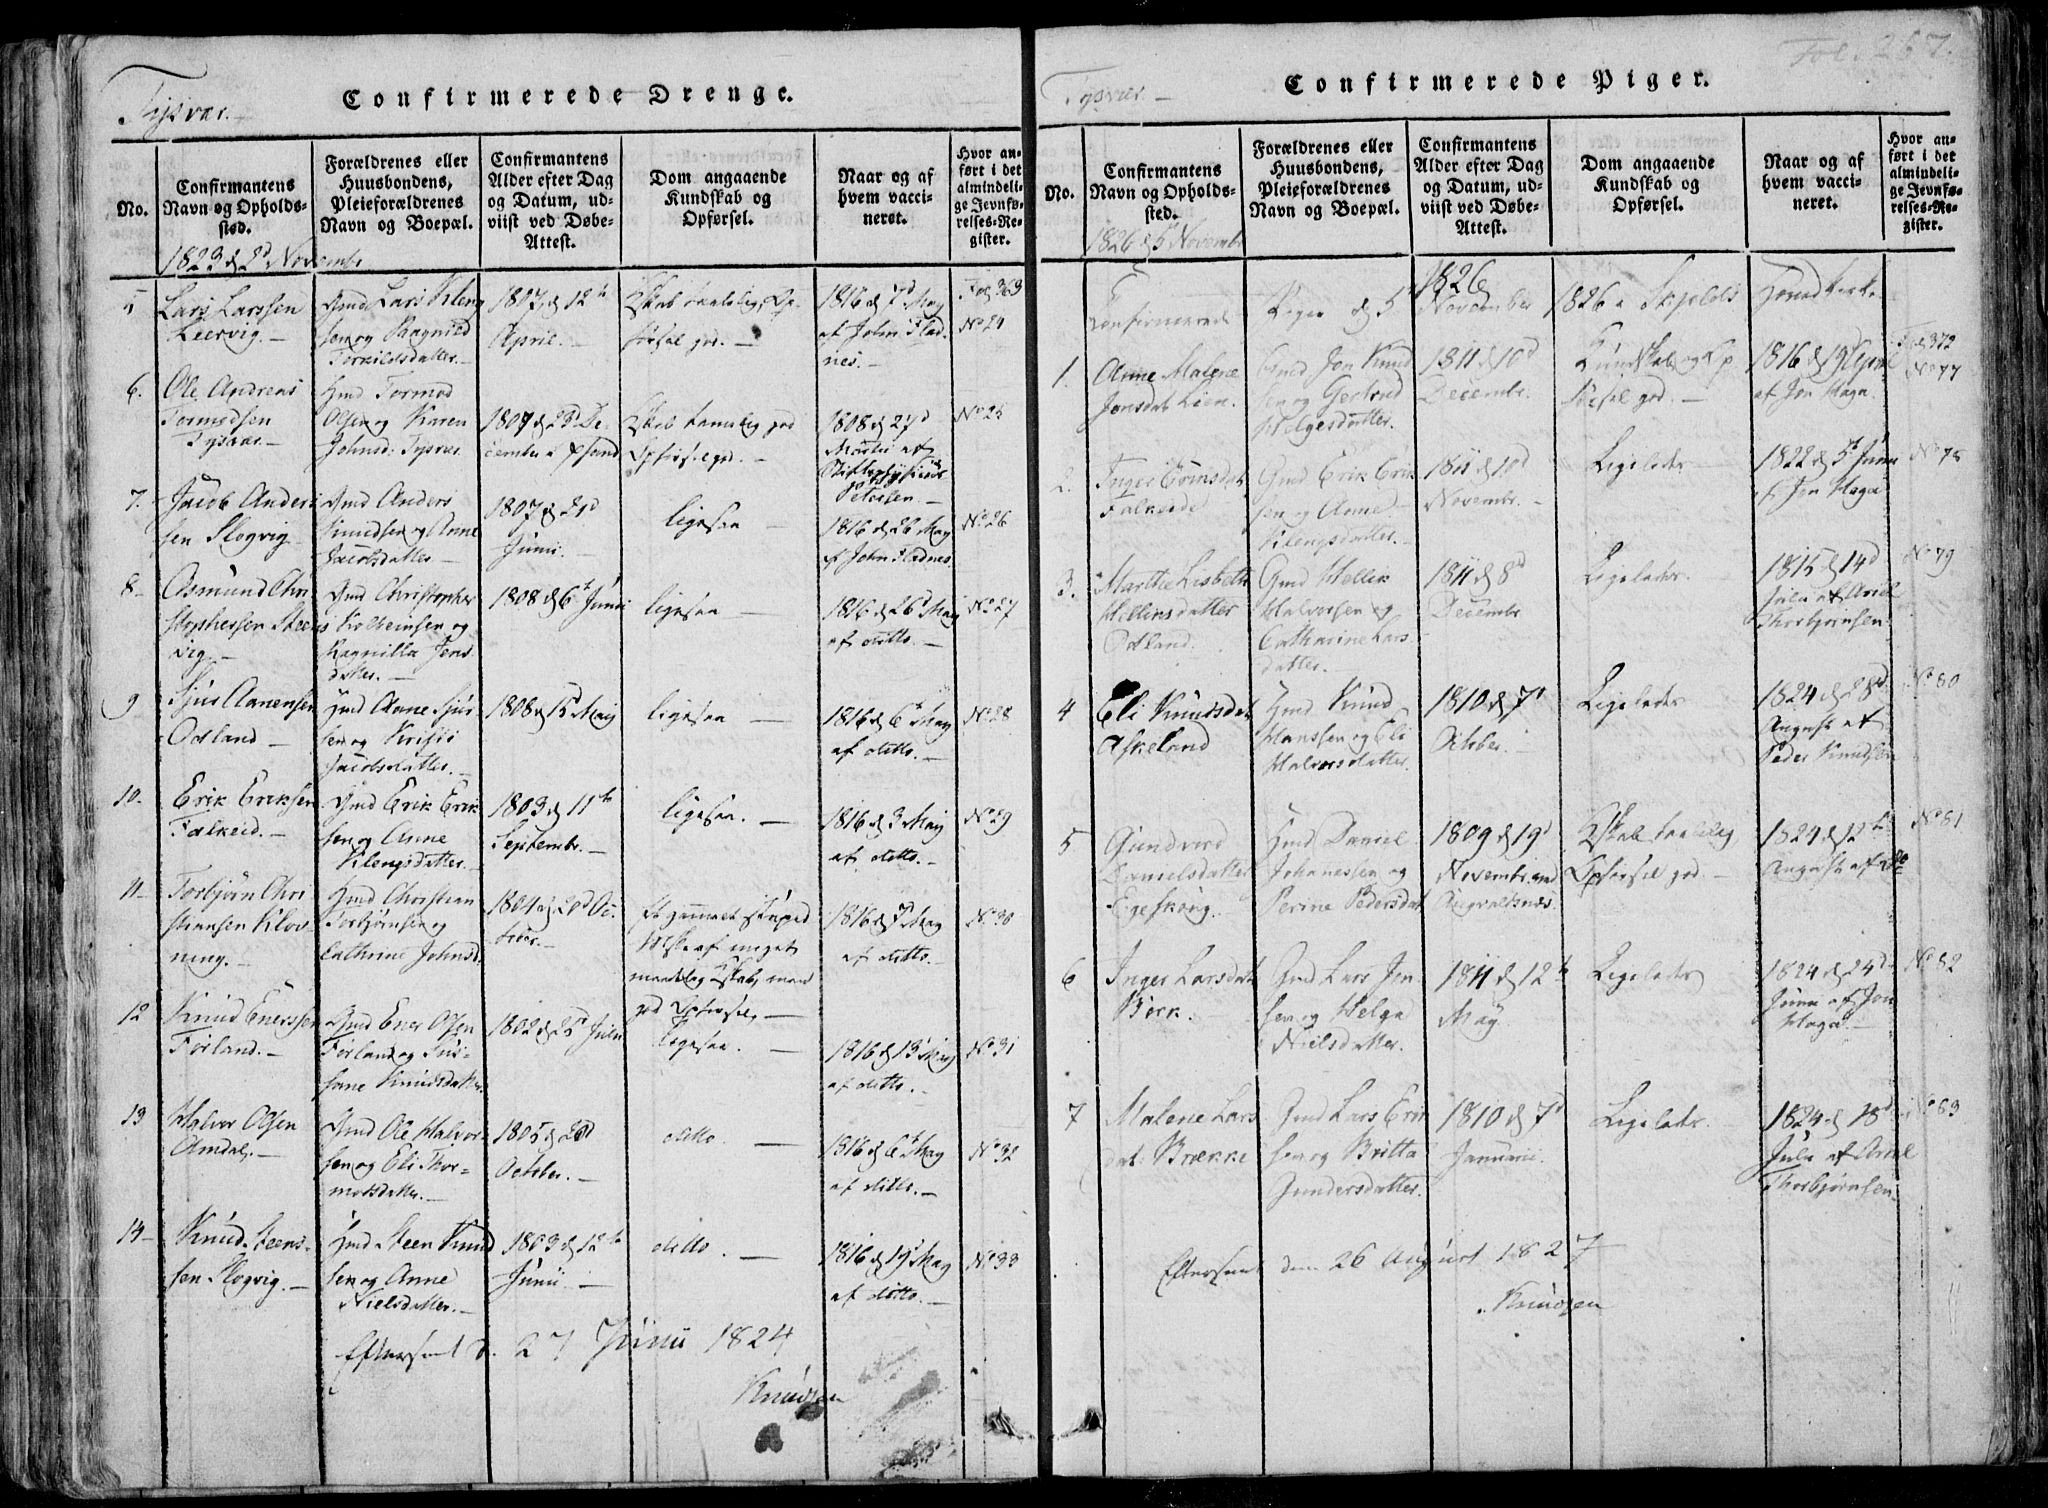 Tysvær.
Confirmerede Drenge.
No.
Confirmantens
Navn og Opholds-
sted.
Forældrenes eller
Huusbondens,
Pleieforældrenes
Navn og Boepæl.
Confirmantens
Alder efter Dag
og Datum, ud-
viist ved Døbe-
Attest.
Dom angaaende
Kundskab og
Opførsel.
Naar og af
hvem vacci-
neret.
Hvor an-
ført i det
almindeli-
ge Jevnfø-
relses-Re-
gister.
1823 d 2d Novembr
5
Lars Larssen
Leervig.
Gmd Lars Kleng
sen og Ragnild
Torkildsdatter.
1807, d 12te
April.
Kskab taalelig, Op-
førsel god.
1816 d 7d May
af John Flad-
nes.
Fol 363
No 24
6.
Ole Andreas
Tormodsen
Tysvær.
Hmd Tormod
Olsen og Karen
Johnsd: Tysvær
1807 d 23d De-
cember
Kskab temelig god
Opførsel gd.
1808 d 27d
Martii af
Petersen
No 25
7.
Jacob Anders
sen Slogvig
Gmd Anders
Knudsen og Anne
Jacobsdatter
1807 d 21d
Junii.
ligesaa
1816 d 26 May
af John Fladnes
No 26
8
Asmund Chri
stophersen Steens
vig.
Gmd Christopher
Kolbeinsen og
Ragnilla Jens
datter.
1808 d 6te Junii
ligesaa
1816 d 26d May
af ditto.
No 27
9
Sjur Aanensen
Odland
Gmd Aane Sjur
sen og Kristi
Jacobsdatter.
1808 d 15d May
ligesaa
1816 d 6te May
af ditto.
No 28
10.
Erik Eriksen
Falkeid.
Gmd Erik Erik
sen og Anne
Klengsdatter.
1803 d 11te
Septembr.
ligesaa.
1816 d 3 May
af ditto.
No 29
11
Torbjørn Chri
stiansen Klov-
ning.
Gmd Christian
Torbjørnsen og
Cathrine Johnsd.
1804 d 20d Oc-
tober.
Et gammelt stupid
af meget
maadelig Kskab, men
god Opførsel
1816 d 7d May
af ditto.
No 30
12
Knud Enerssen
Førland.
Gmd Ener Olsen
Førland og Su-
sane Knudsdatter.
1802 d 25d Julii
ligesaa.
1816 d 13d May
af ditto.
No 31
13
Halvor Olsen
Amdal.
Gmd Ole Halvor-
sen og Eli Thor-
modsdatter.
1805 d 20d
October.
ditto.
1816 d 6te May
af ditto.
No 32
14
Knud Steens-
sen Slogvig.
Hmd Steen Knud
sen og Anne
Nielsdatter.
1803 d 12te
Junii
ditto.
1816 d 19d May
af ditto.
No 33
Efterseet d. 27 Junii 1824
Knudsen
Fol. 267.
Tysvær.
Confirmerede Piger.
No.
Confirmantens
Navn og Opholds-
sted.
Forældrenes eller
Huusbondens,
Pleieforældrenes
Navn og Boepæl.
Confirmantens
Alder efter Dag
og Datum, ud-
viist ved Døbe-
Attest.
Dom angaaende
Kundskab og
Opførsel.
Naar og af
hvem vacci-
neret.
Hvor an-
ført i det
almindeli-
ge Jevnfø-
relses-Re-
gister.
1826 d 5 Novembr
1826
Confirmerede Piger d 5te November 1826 i Skjolds Hoved Kirke
1.
Anne Malene
Jonsdat Lien.
Gmd Jon Knud
sen og Gertrud
Helgesdatter.
1811 d 10d
Decembr.
Kundskab og Op
førsel god.
1816 d 19d April
af Jon Haga.
Fol 372
No 77
2.
Inger Erichsdat
Falkeide
Gmd Erik Erik
sen og Anne
Klengsdatter.
1811 d 10d
Novembr.
Ligeledes
1822 d 5te Junii
af Jon Haga
No 78
3.
Marthe Lisbeth
Hellinsdatter
Odland.
Gmd Hellik
Halvorsen og
Catharine Lars
datter.
1811 d 8d
Decembr
Ligeledes.
1815 d 14d
Julii af Ariel
Thorbjørnsen.
No 79
4
Eli Knudsdat
Askeland
Hmd Knud
Hanssen og Eli
Halvorsdatter.
1810 d 7d
October.
Ligeledes
1824 d 28d
August af
Peder Knudsen
No 80
5
Gundvord
Danielsdatter
Egeskoug.
Hmd Daniel
Johanessen og
Perine Pedersdat
1809 d 19d
Novembr.
Kskab taalelig,
Opførsel god
1824 d 12te
August af do
No 81
6
Inger Larsdat
Børk.
Gmd Lars Jon
sen og Helga
Nielsdatter.
1811 d 12te
May
Ligeledes
1824 d 24d
Junii af Jon
Haga.
No 82
7
Malene Lars
dat: Brekke
Gmd Lars Erik
sen og Britta
Gundersdatter.
1810 d 7d
Januarii.
Ligeledes.
1824 d 18d
Julii af Ariel
Thorbjørnsen.
No 83
Efterseet den 26 August 1827
Knudsen